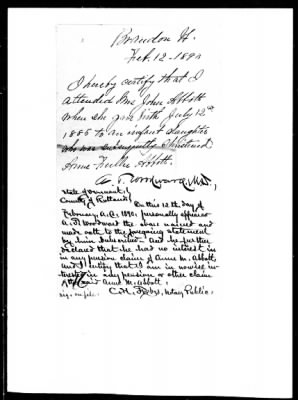 Brandon Vt.
Feb. 12 - 1890
I hereby certify that I
attended Mrs John Abbott
when she gave birth July 12th
1885 to an infant daughter
who was subsequently Christened
Anne Abbott.
A. T. Woodward M.D.
State of Vermont,
County of Rutland, On this 12th day of
February, A.D. 1890, personally appeared
A. T. Woodward the above named and
made oath to the foregoing statement
by him subscribed. And he further
declared that he had no interest in
in any pension claim of Anne M. Abbott,
and I certify that I am in nowise in-
terested in any pension or other claim
of the said Anne M. Abbott.
Sig. on file. C. H. Notary Public.